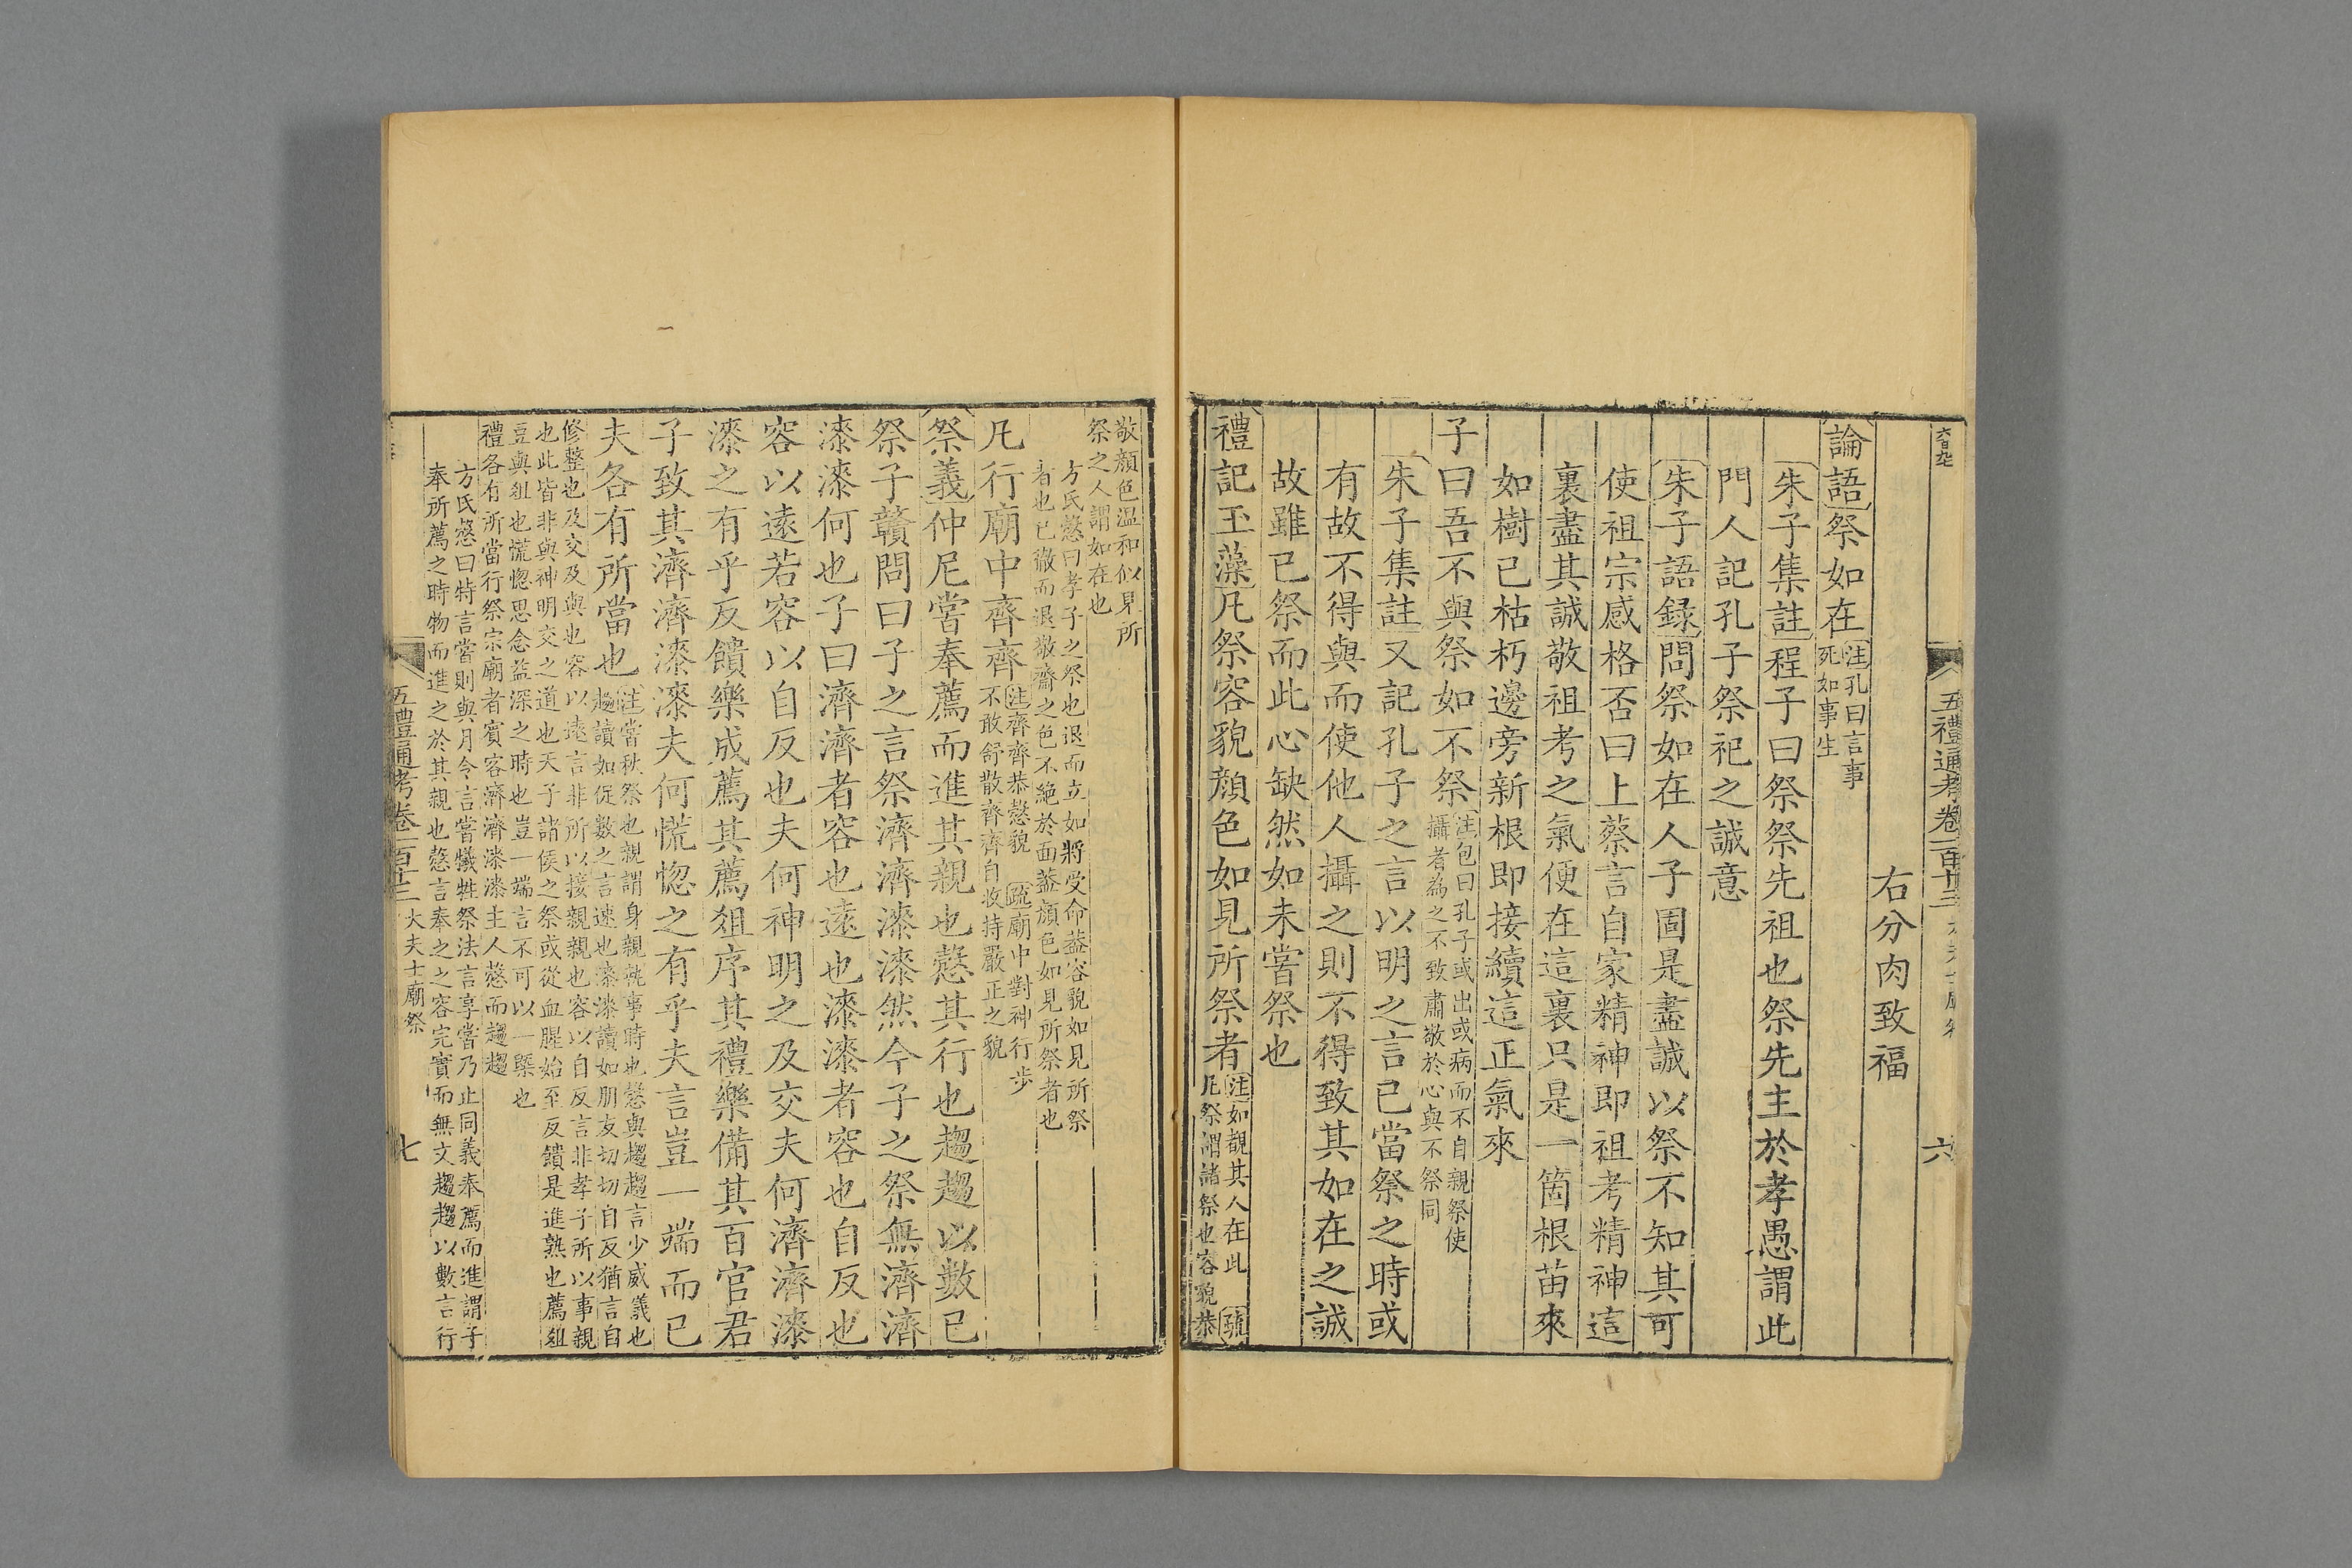 五禮通考卷一百十三
六
右分肉致福
論語祭如在注孔曰言事死如事生
朱子集註程子曰祭祭先祖也祭先主於孝愚謂此
門人記孔子祭祀之誠意
朱子語錄問祭如在人子固是盡誠以祭不知其可
使祖宗感格否曰上蔡言自家精神即祖考精神這
裏盡其誠敬祖考之氣便在這裏只是一箇根苗來
如樹已枯朽邊旁新根即接續這正氣來
子曰吾不與祭如不祭注包曰孔子或出或病而不自親祭使攝者為之不致肅敬於心與不祭同
朱子集註又記孔子之言以明之言已當祭之時或
有故不得與而使他人攝之則不得致其如在之誠
故雖已祭而此心缺然如未嘗祭也
禮記玉藻凡祭容貌顏色如見所祭者注如覩其人在此 疏凡祭謂諸祭也容貌恭
敬顏色温和似見所祭之人謂如在也
方氏慤曰孝子之祭也退而立如將受命葢容貌如見所祭
者也已徹而退敬齊之色不絶於面葢顏色如見所祭者也
凡行廟中齊齊注齊齊恭慤貌 疏廟中對神行步不敢舒散齊齊自收持嚴正之貌
祭義仲尼嘗奉薦而進其親也慤其行也趨趨以數已
祭子贛問曰子之言祭濟濟漆漆然今子之祭無濟濟
漆漆何也子曰濟濟者容也遠也漆漆者容也自反也
容以遠若容以自反也夫何神明之及交夫何濟濟漆
漆之有乎反饋樂成薦其薦俎序其禮樂備其百官君
子致其濟濟漆漆夫何慌惚之有乎夫言豈一端而已
夫各有所當也注嘗秋祭也親謂身親執事時也慤與趨趨言少威儀也趨讀如促數之言速也漆漆讀如朋友切切自反猶言自
修整也及交及與也容以遠言非所以接親親也容以自反言非孝子所以事親
也此皆非與神明交之道也天子諸侯之祭或從血腥始至反饋是進熟也薦俎
豆與俎也慌惚思念益深之時也豈一端言不可以一槩也
禮各有所當行祭宗廟者賓客濟濟漆漆主人慤而趨趨
方氏慤曰特言嘗則與月令言嘗犧牲祭法言享嘗乃止同義奉薦而進謂子
奉所薦之時物而進之於其親也慤言奉之之容完實而無文趨趨以數言行
五禮通考卷一百十三 大夫士廟祭
七